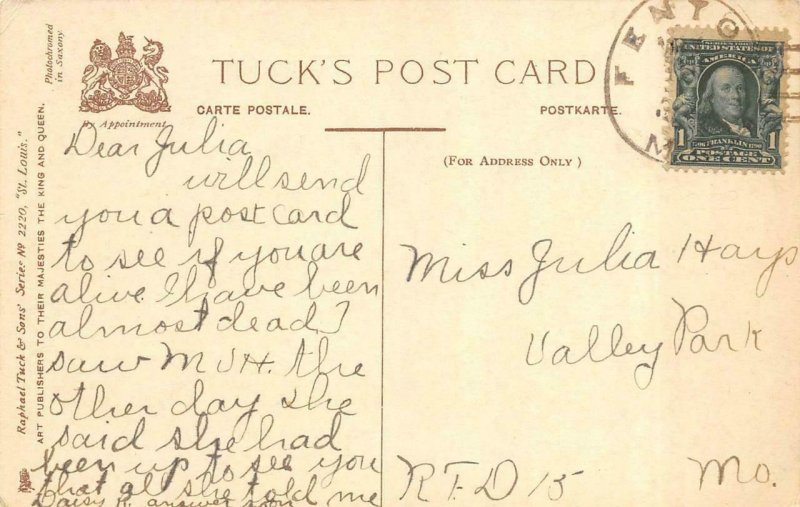 TUCK'S POST CARD
CARTE POSTALE.
POSTKARTE.
By Appointment
(FOR ADDRESS ONLY)
Photochromed
in Saxony
Raphael Tuck & Sons' Series No 2220, "St. Louis."
ART PUBLISHERS TO THEIR MAJESTIES THE KING AND QUEEN.
FENTO
M
UNITED STATES OF
AMERICA
1 1
FRANKLIN
POSTAGE
ONE CENT
Dear Julia
will send
you a postcard
to see if you are
alive I have been
almost dead I
saw M J H. the
other day she
said she had
been up to see you
that all she told me
Daisy H. answer soon
Miss Julia Hays
Valley Park
R F D 15 Mo.